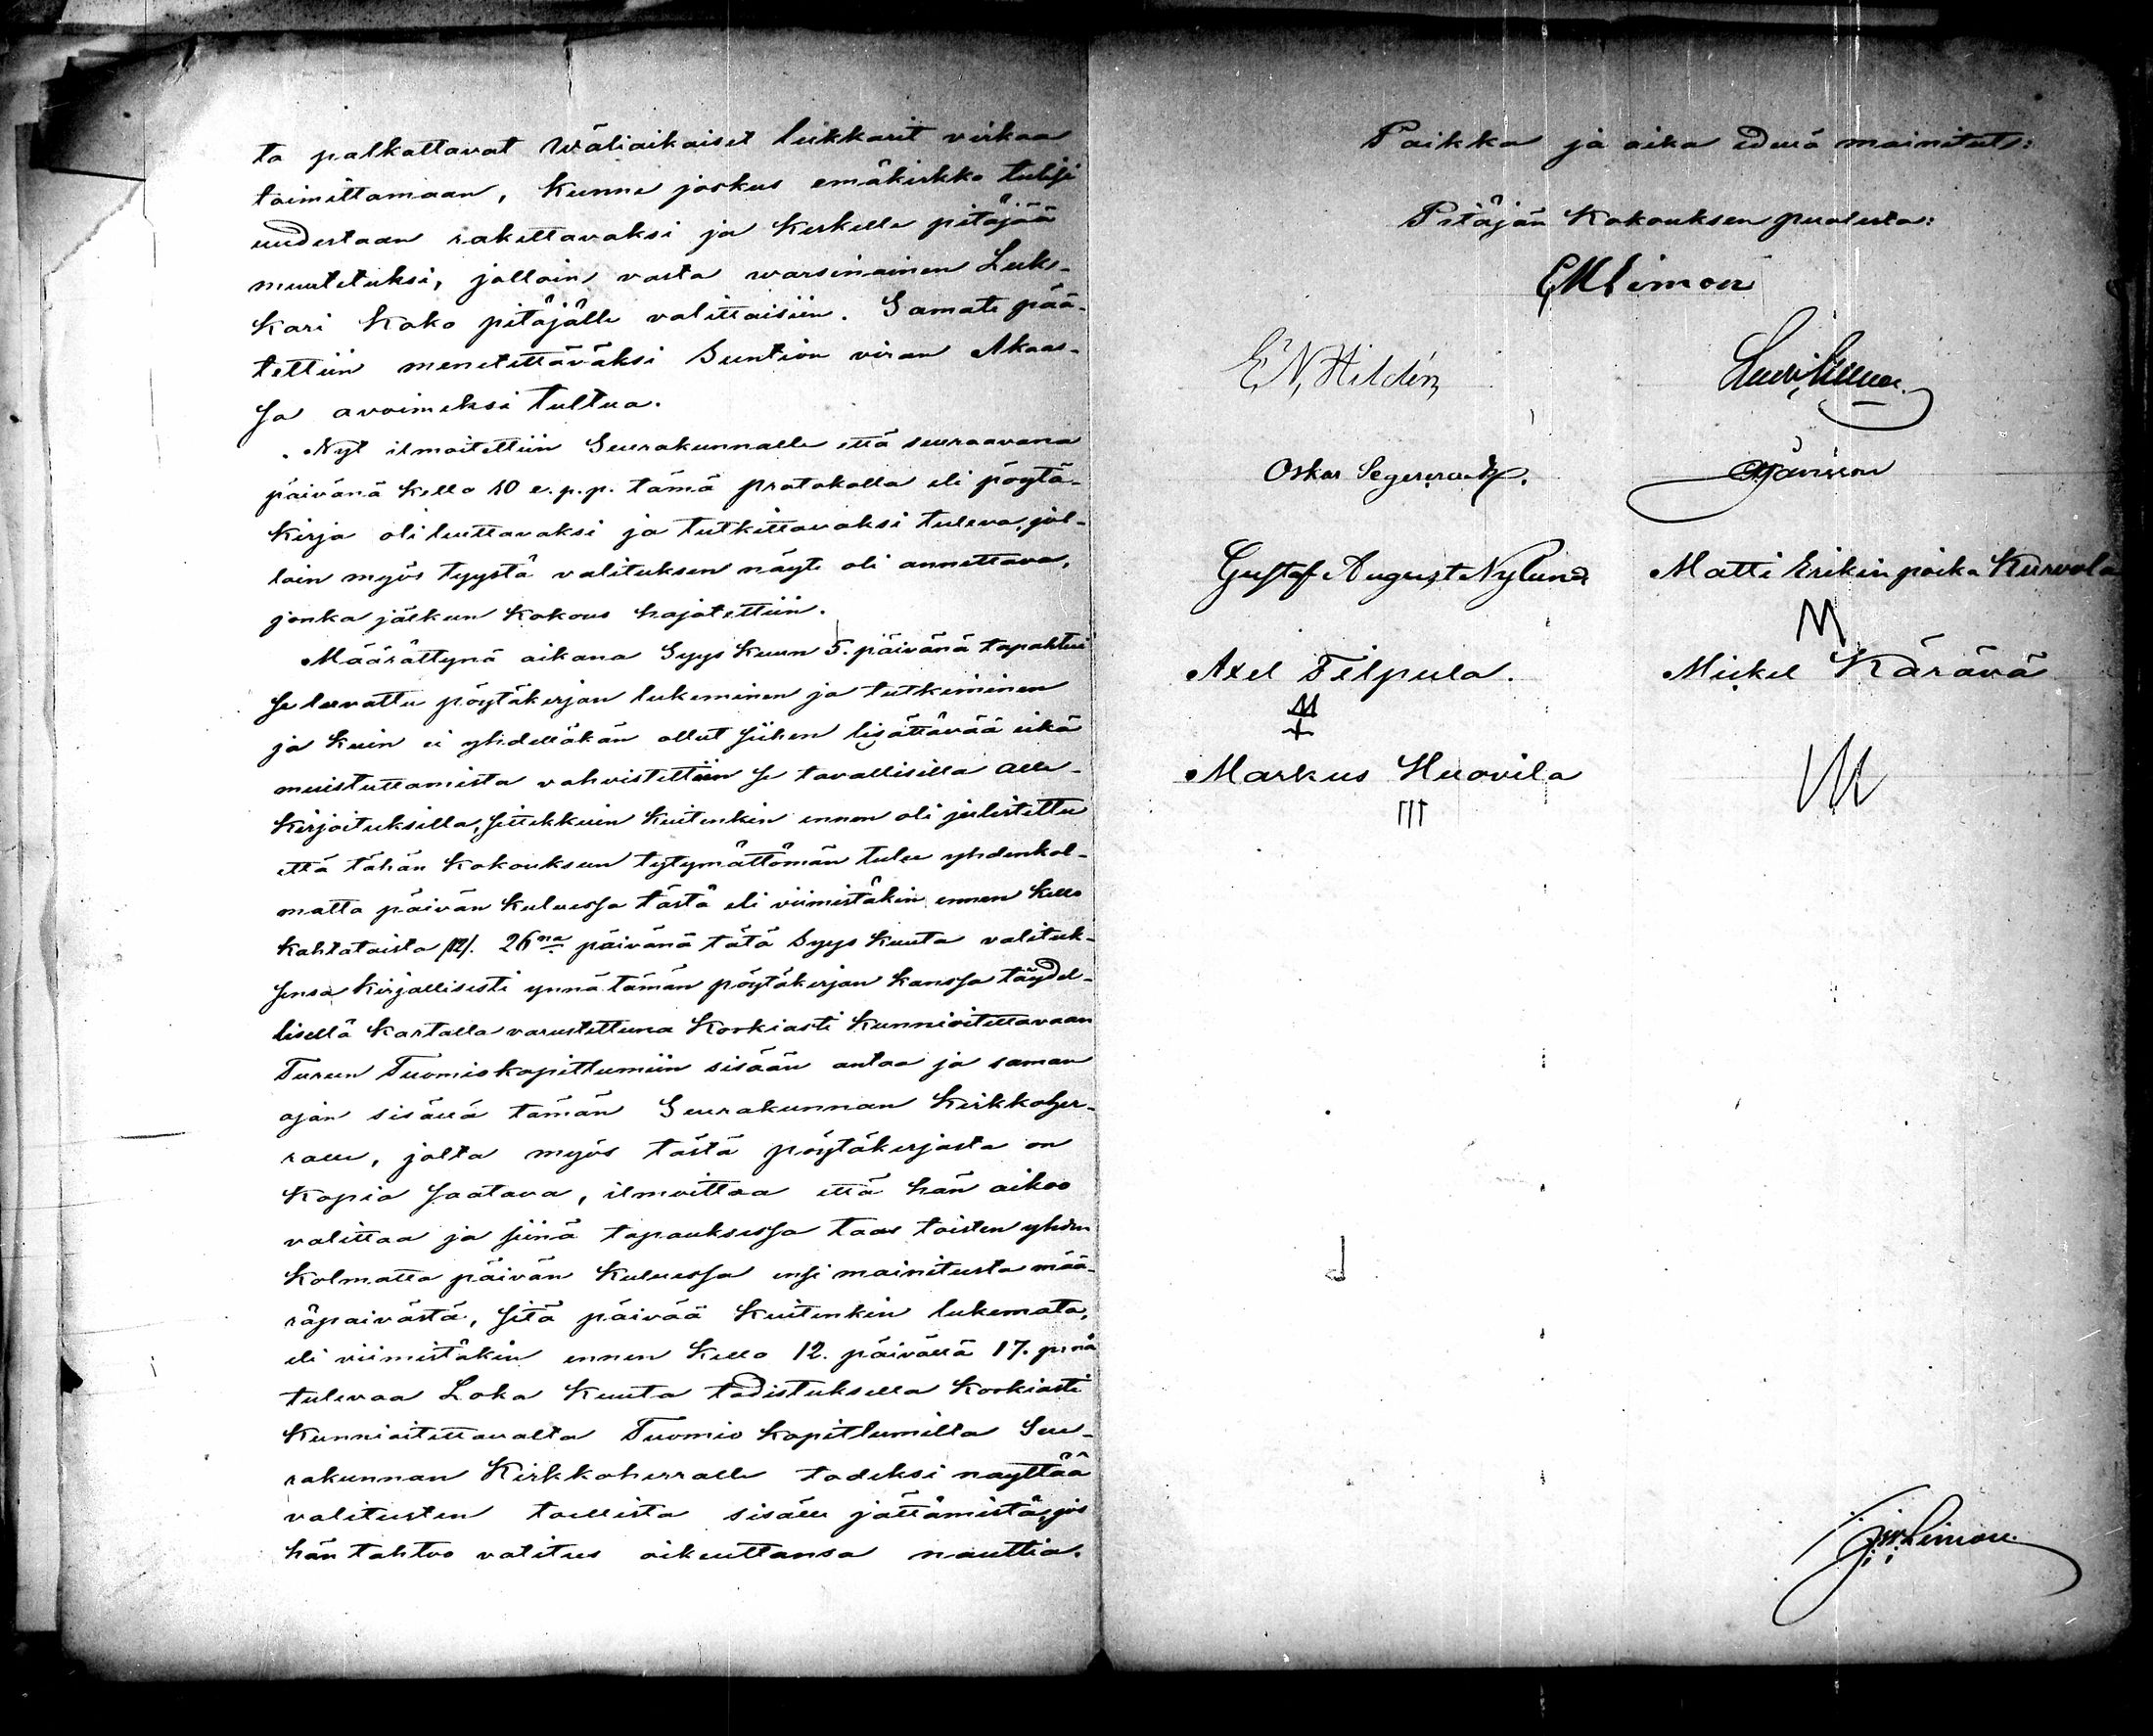 ta palkattavat wäliaikaiset lukkarit virkaa
toimittamaan, kunne joskus emäkirkko tulisi
uudestaan rakettavaksi ja keskelle pitäjää
muutetuksi, jolloin vasta warsinainen Luk-
kari koko pitäjälle valittaisiin. Samate pää-
tettiin menetettäväksi Suntion viran Akaas-
sa avoimeksi tultua.
Nyt ilmoitettiin Seurakunnalle että seuraavana
päivänä kello 10 e.p.p. tämä protokolla eli pöytä-
kirja oli luettavaksi ja tutkittavaksi tuleva, jol-
loin myös tyystä valituksen näyte oli annettava,
jonka jälkeen kokous hajotettiin.
Määrättynä aikana Syys kuun 5. päivänä tapahtui
se luvattu pöytäkirjan lukeminen ja tutkiminen
ja kuin ei yhdelläkän ollut siihen lisättävää eikä
muistuttamista vahvistettiin se tavallisilla alle-
kirjoituksilla, sittekkuin kuitenkin ennen oli julistettu
että tähän kokouksen tytymättömän tulee yhdenkol-
matta päivän kuluessa tästä eli viimistäkin ennen kello
kahtatoista /12/. 26na päivänä tätä Syys kuuta valituk-
sensa kirjallisesti ynnä tämän pöytäkirjan kanssa täydel-
lisellä kartalla varustettuna Korkiasti Kunnioitettavaan
Turun Tuomiokapittumiin sisään antaa ja saman
ajan sisällä tämän Seurakunnan Kirkkoher-
ralle, jolta myös tästä pöytäkirjasta on
kopia saatava, ilmoittaa että hän aikoo
valittaa ja siinä tapauksessa taas toisten yhden
kolmatta päivän kuluessa ensi mainitusta mää-
räpaivästä, sitä päivää kuitenkin lukemata,
eli viimistäkin ennen kello 12. päivällä 17. p:nä
tulevaa Loka kuuta todistuksella Korkiasti
Kunnioitettavalta Tuomio kapitlumilta Seu-
rakunnan Kirkkoherralle todeksi nayttää
valitusten toellista sisälle jättämistä, jos
hän tahtoo valitus oikeuttansa nauttia.
Paikka ja aika edellä mainitut:
Pitäjän Kokouksen puolesta:
Limon
E. N. Hildén
Oskar
Gustaf August Nylund Matti Erikin poika Kurvola
Axel Tilpula. Mickel Kärävä
Markus Huovila
Limon